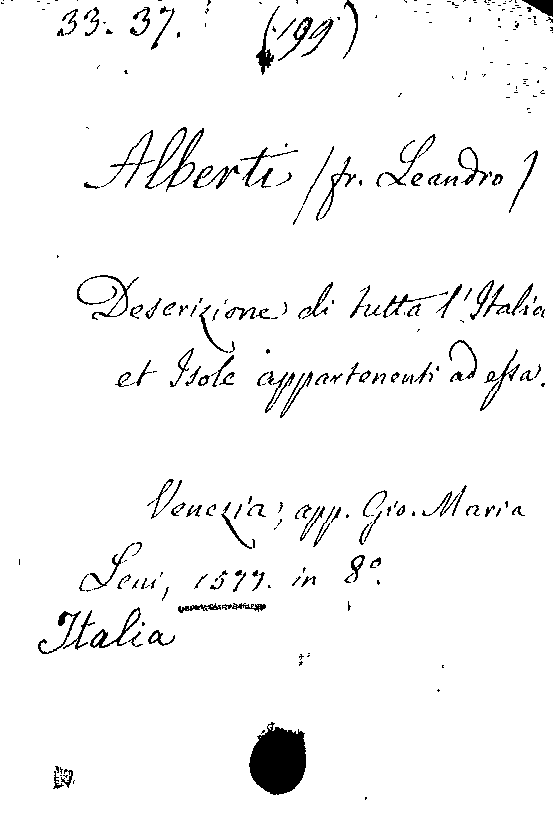 33. 37. (199)
Alberti (fr. Leandro)
Descrizione di tutta l'Italia
et Isole appartenenti ad essa.
Venezia, app. Gio. Maria
Leni, 1577. in 8º.
Italia